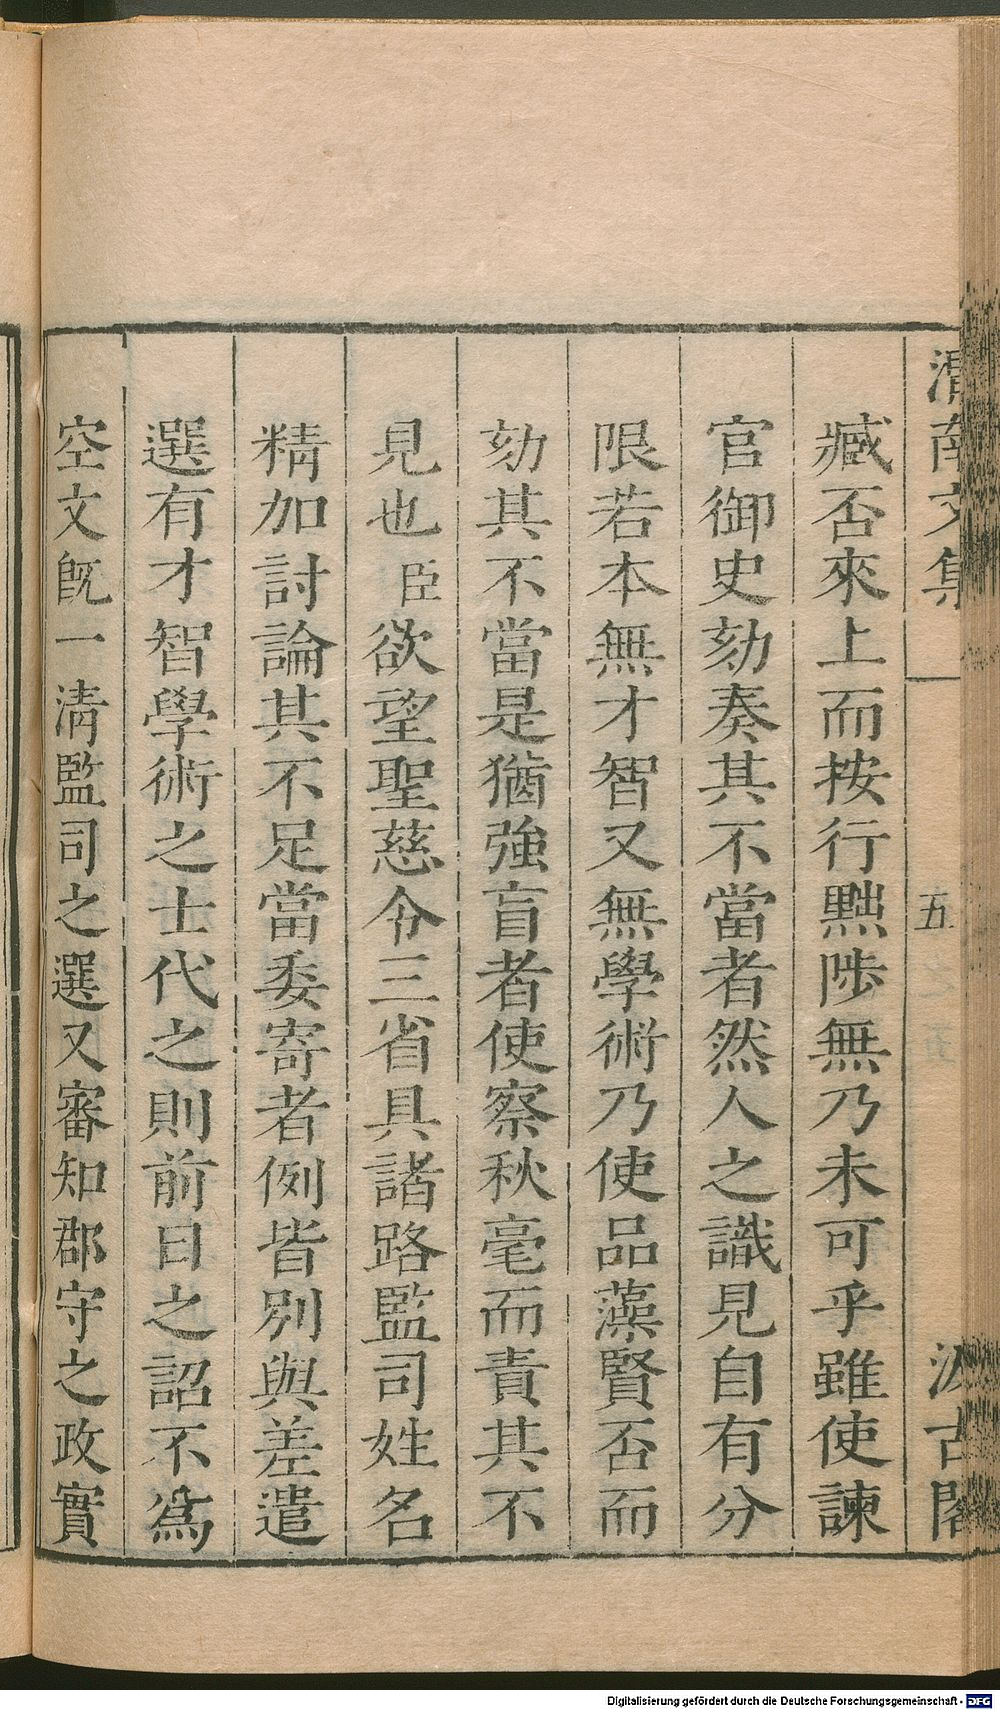 渭南文集
五
汲古閣
臧否來上而按行黜陟無乃未可乎雖使諫
官御史劾奏其不當者然人之識見自有分
限若本無才智又無學術乃使品藻賢否而
劾其不當是猶強盲者使察秋毫而責其不
見也臣欲望聖慈令三省具諸路監司姓名
精加討論其不足當委寄者例皆別與差遣
選有才智學術之士代之則前日之詔不爲
空文旣一淸監司之選又審知郡守之政實
Digitalisierung gefördert durch die Deutsche Forschungsgemeinschaft - DFG